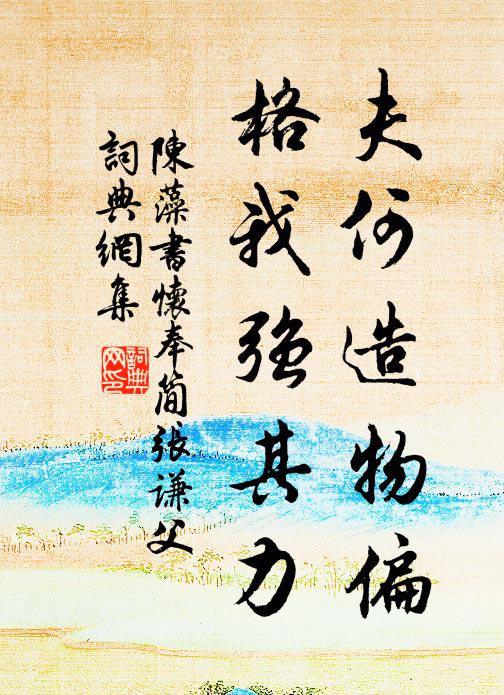 夫何造物偏
格我強其力
陳藻書懷奉简張谦父
詞典網集
詞典
网印